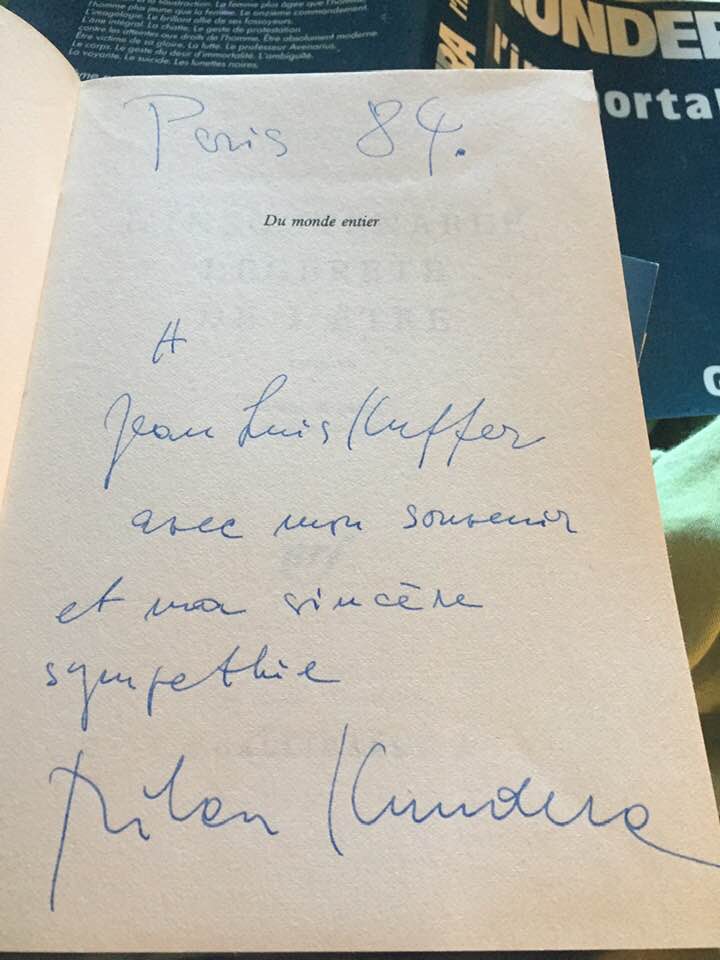 l'homme plus jeune que la femme. Le onzième commandement.
L'imagologie. Le brillant allié de ses fossoyeurs.
L'âne intégral. La chatte. Le geste de protestation
contre les attentes aux droits de l'homme. Être absolument moderne
Être victime de sa gloire. La lutte. Le professeur Avenarius.
Le corps. Le geste du désir d'immortalité. L'ambiguïté.
La voyante. Le suicide. Les lunettes noires.
UNDE
l'i
mortal
Paris 84.
Du monde entier
A
Jean Luis Kuffer
avec mon souvenir
et ma sincère
sympathie
Milan Kundera